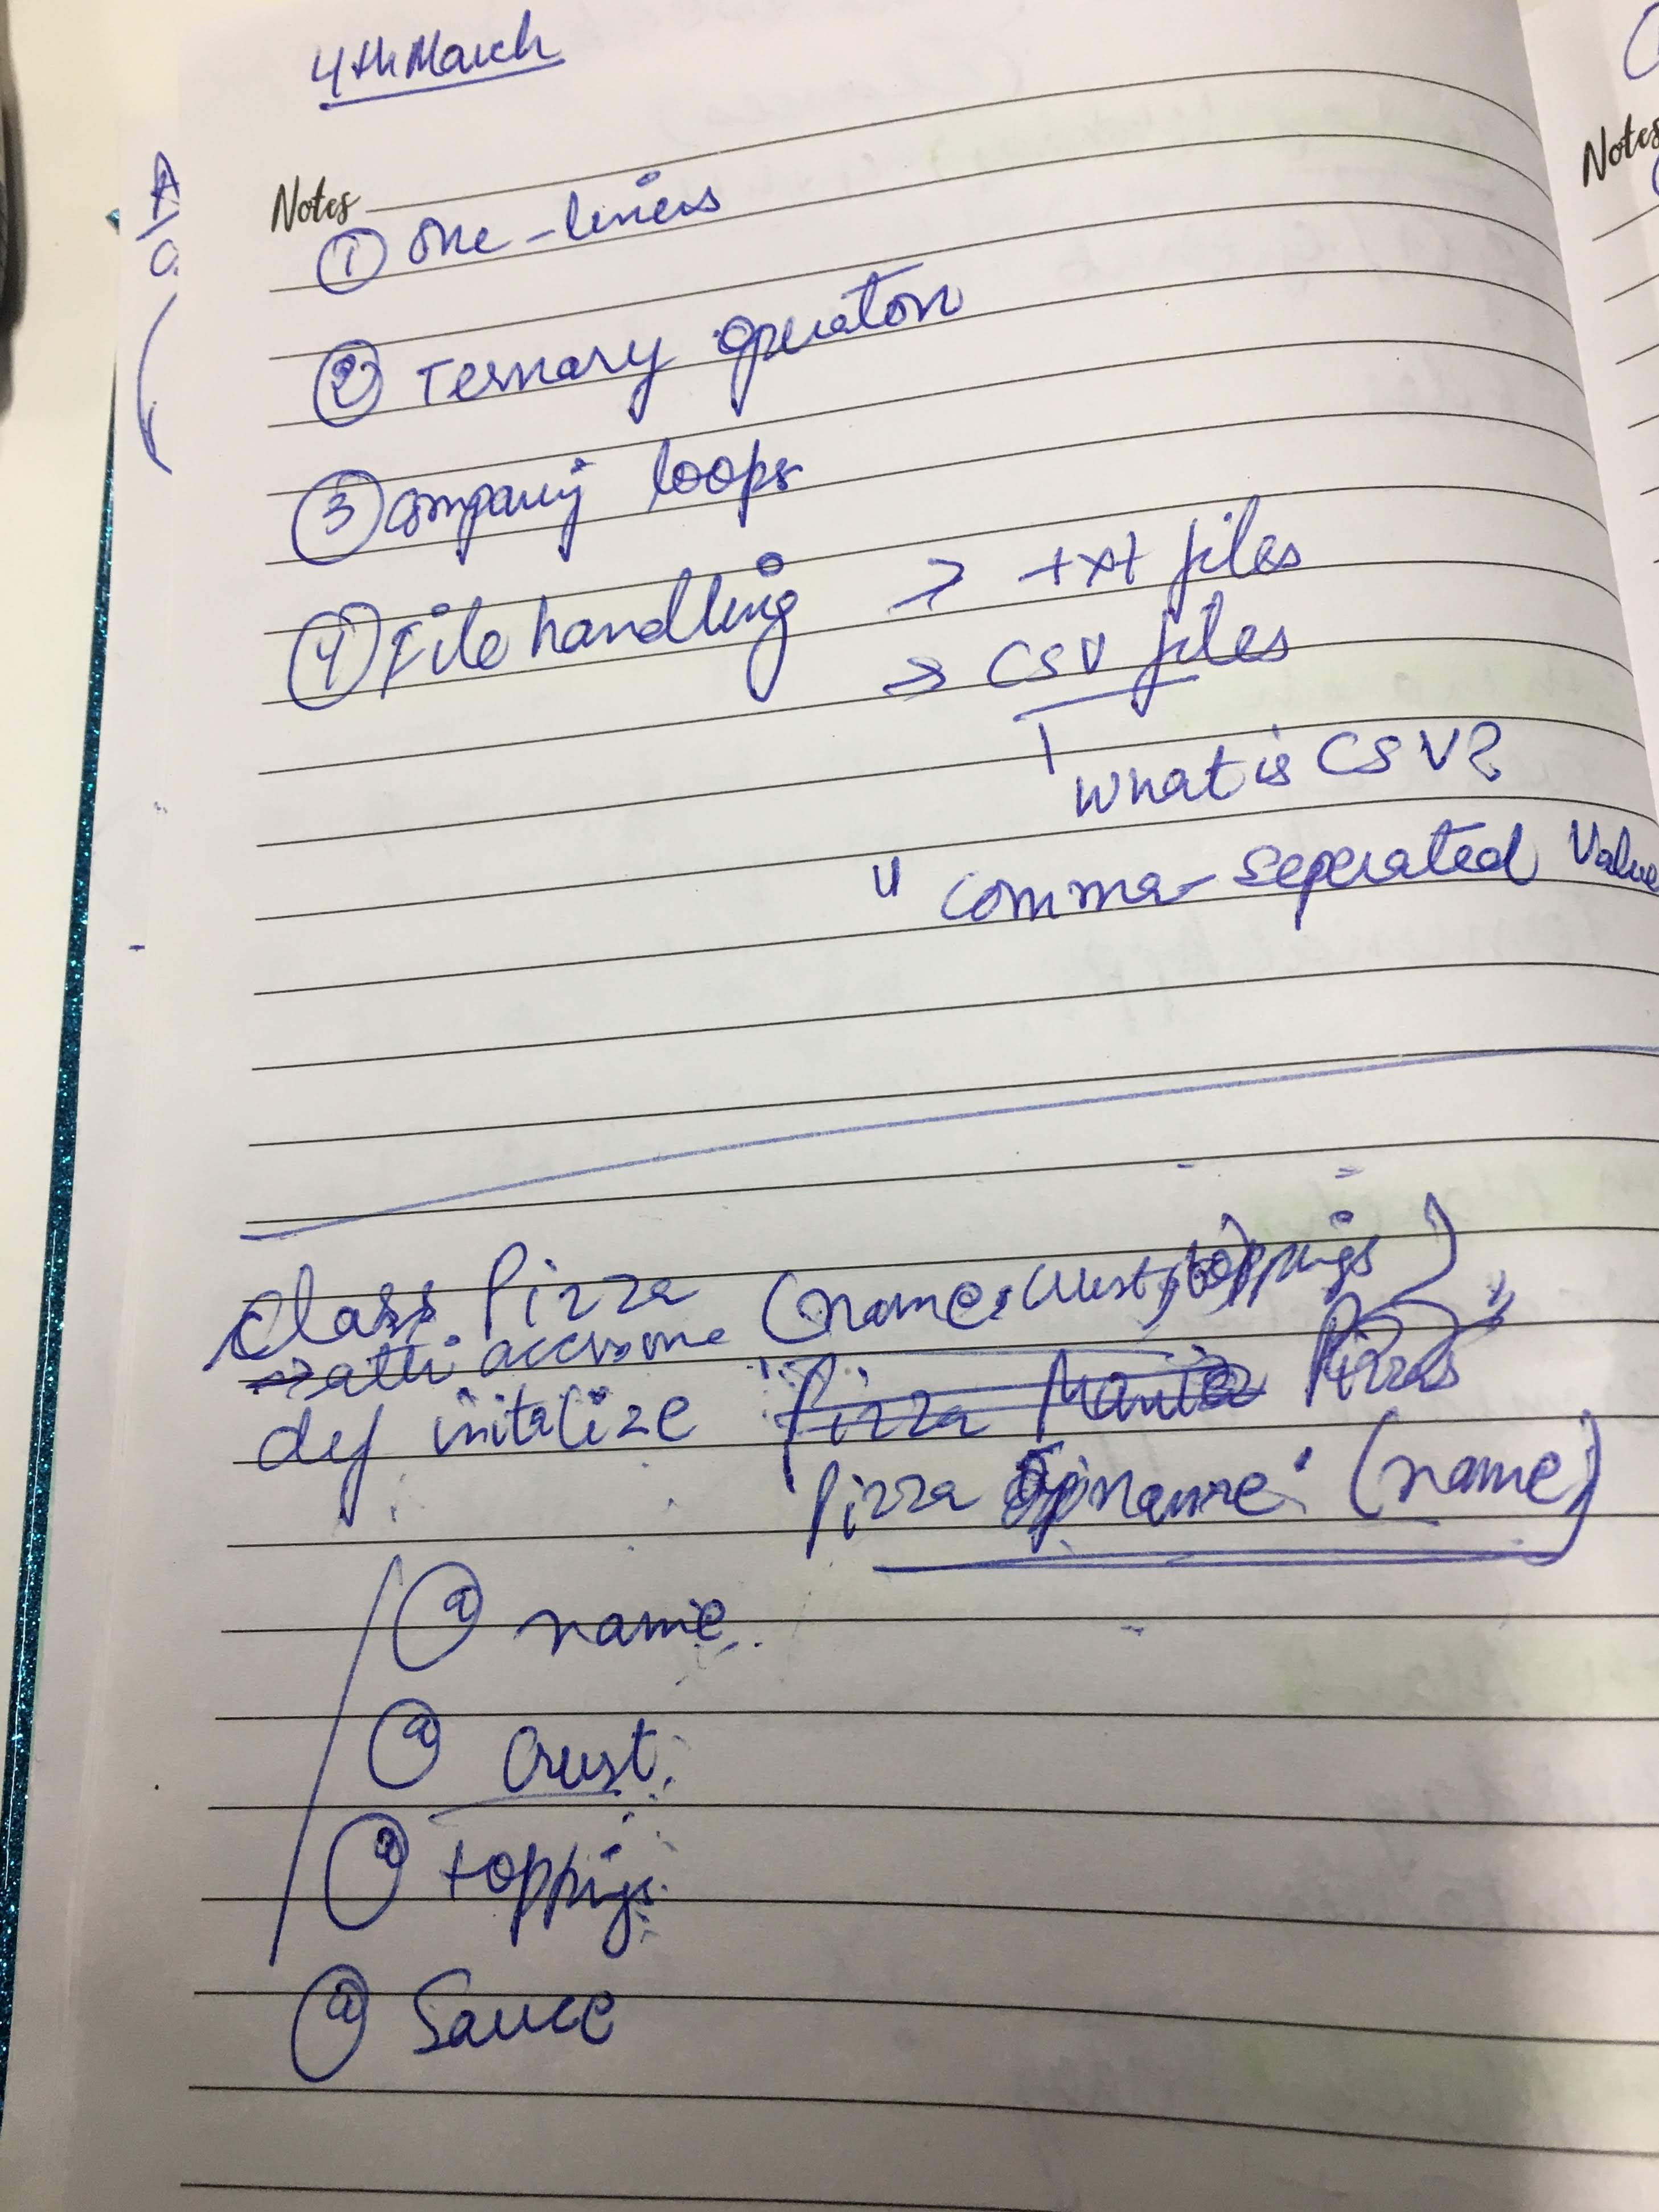 4th March
Notes
Notes
① one-liners
② Ternary operators
③ Comparing loops
④ File handling → txt files
→ CSV files
What is CSV?
" comma-seperated Value
class Pizza (name, crust, toppings)
→ attr. accessor
def initalize Pizza Pizzas"
Pizza name: (name)
@ name
@ crust
@ toppings
@ Sauce